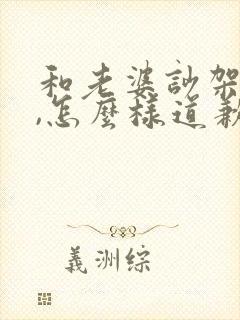 和老婆訃架
,怎麼樣道歉
義洲綜